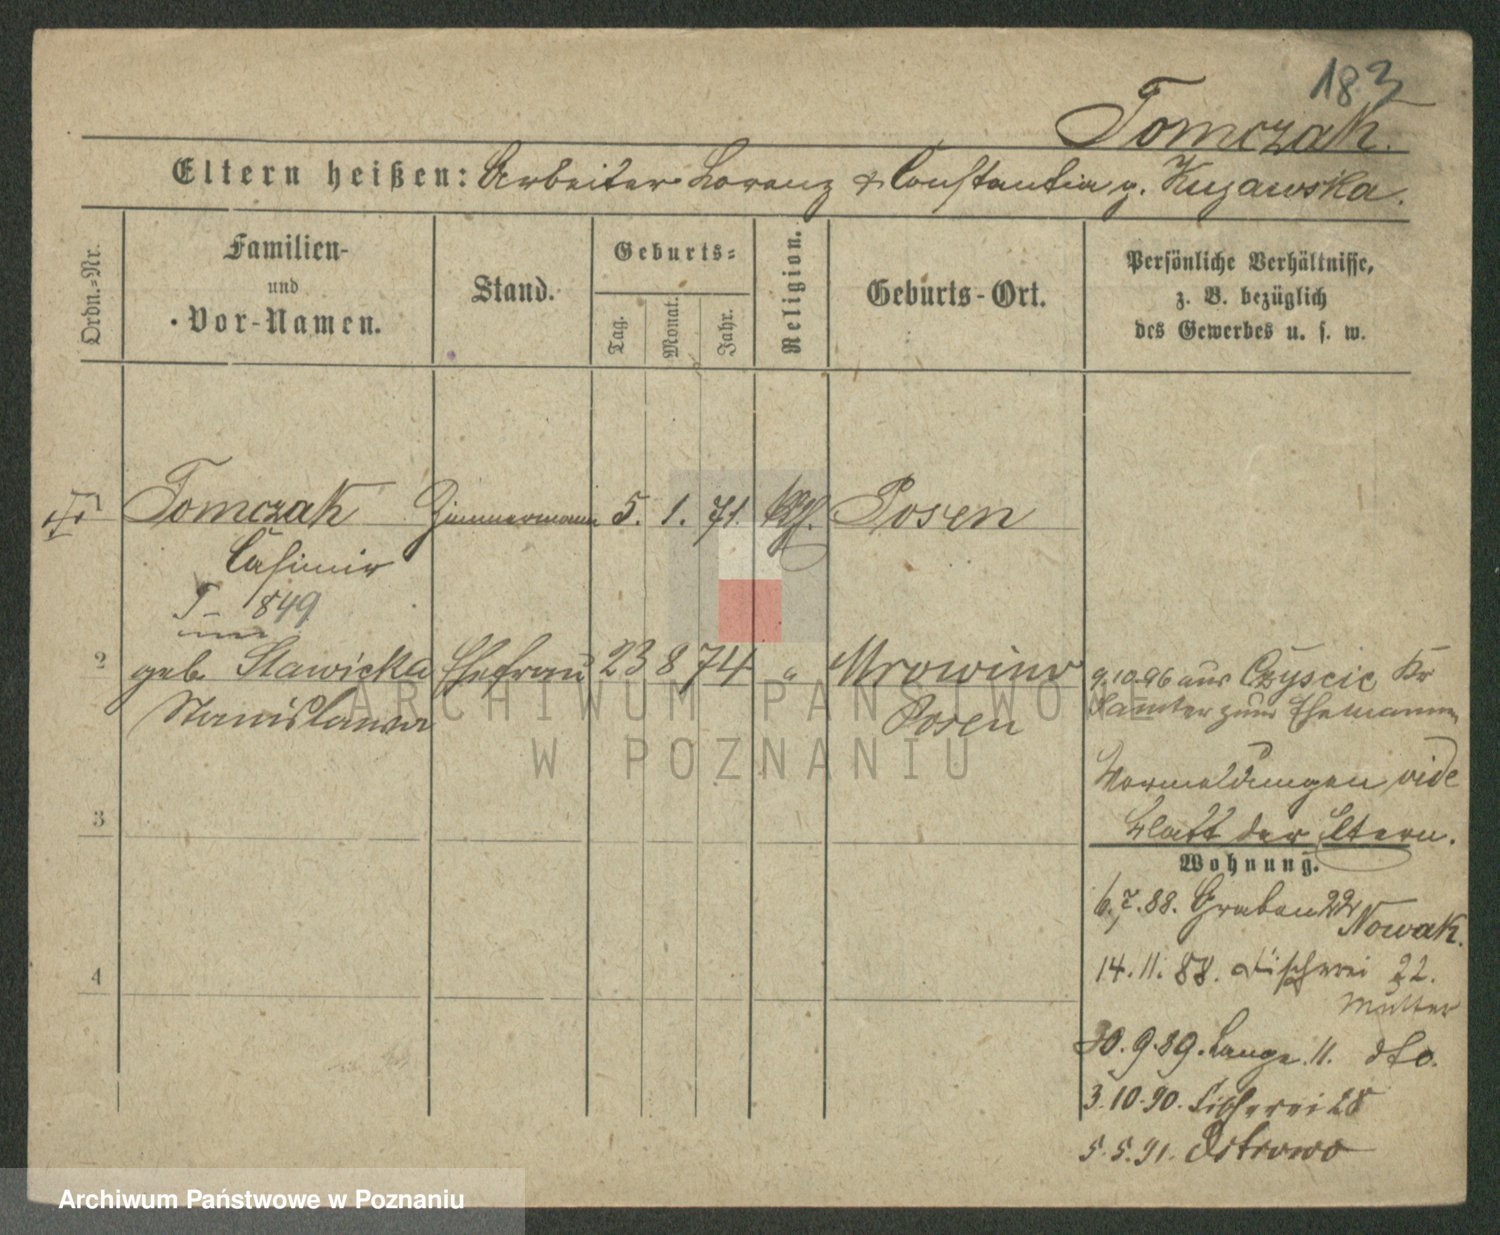 183
Tomczak.
Eltern heißen: Arbeiter Lorenz & Constantia g. Kujawska.
Ordn.-Nr.
Familien- und Vor-Namen.
Stand.
Geburts-
Tag.
Monat.
Jahr.
Religion.
Geburts-Ort.
Persönliche Verhältnisse,
z. B. bezüglich
des Gewerbes u. s. w.
Tomczak Zimmermann 5. 1. 71. kth. Posen
Casimir
T 849
2 geb. Stawicka Ehefrau 23 8 74 " Mrowino
Stanislawa Posen
9.10.96 aus Czyscic Kr
Samter zum Ehemann
Vormeldungen vide
Blatt der Eltern.
3
Wohnung.
6.7.88. Graben 22 Nowak.
4
14.11.88. Fischerei 22.
Mutter
30.9.89. Lange. 11. dto.
3.10.90. Fischerei 28
5.5.91. Ostrowo
ARCHIWUM PAŃSTWOWE
W POZNANIU
Archiwum Państwowe w Poznaniu